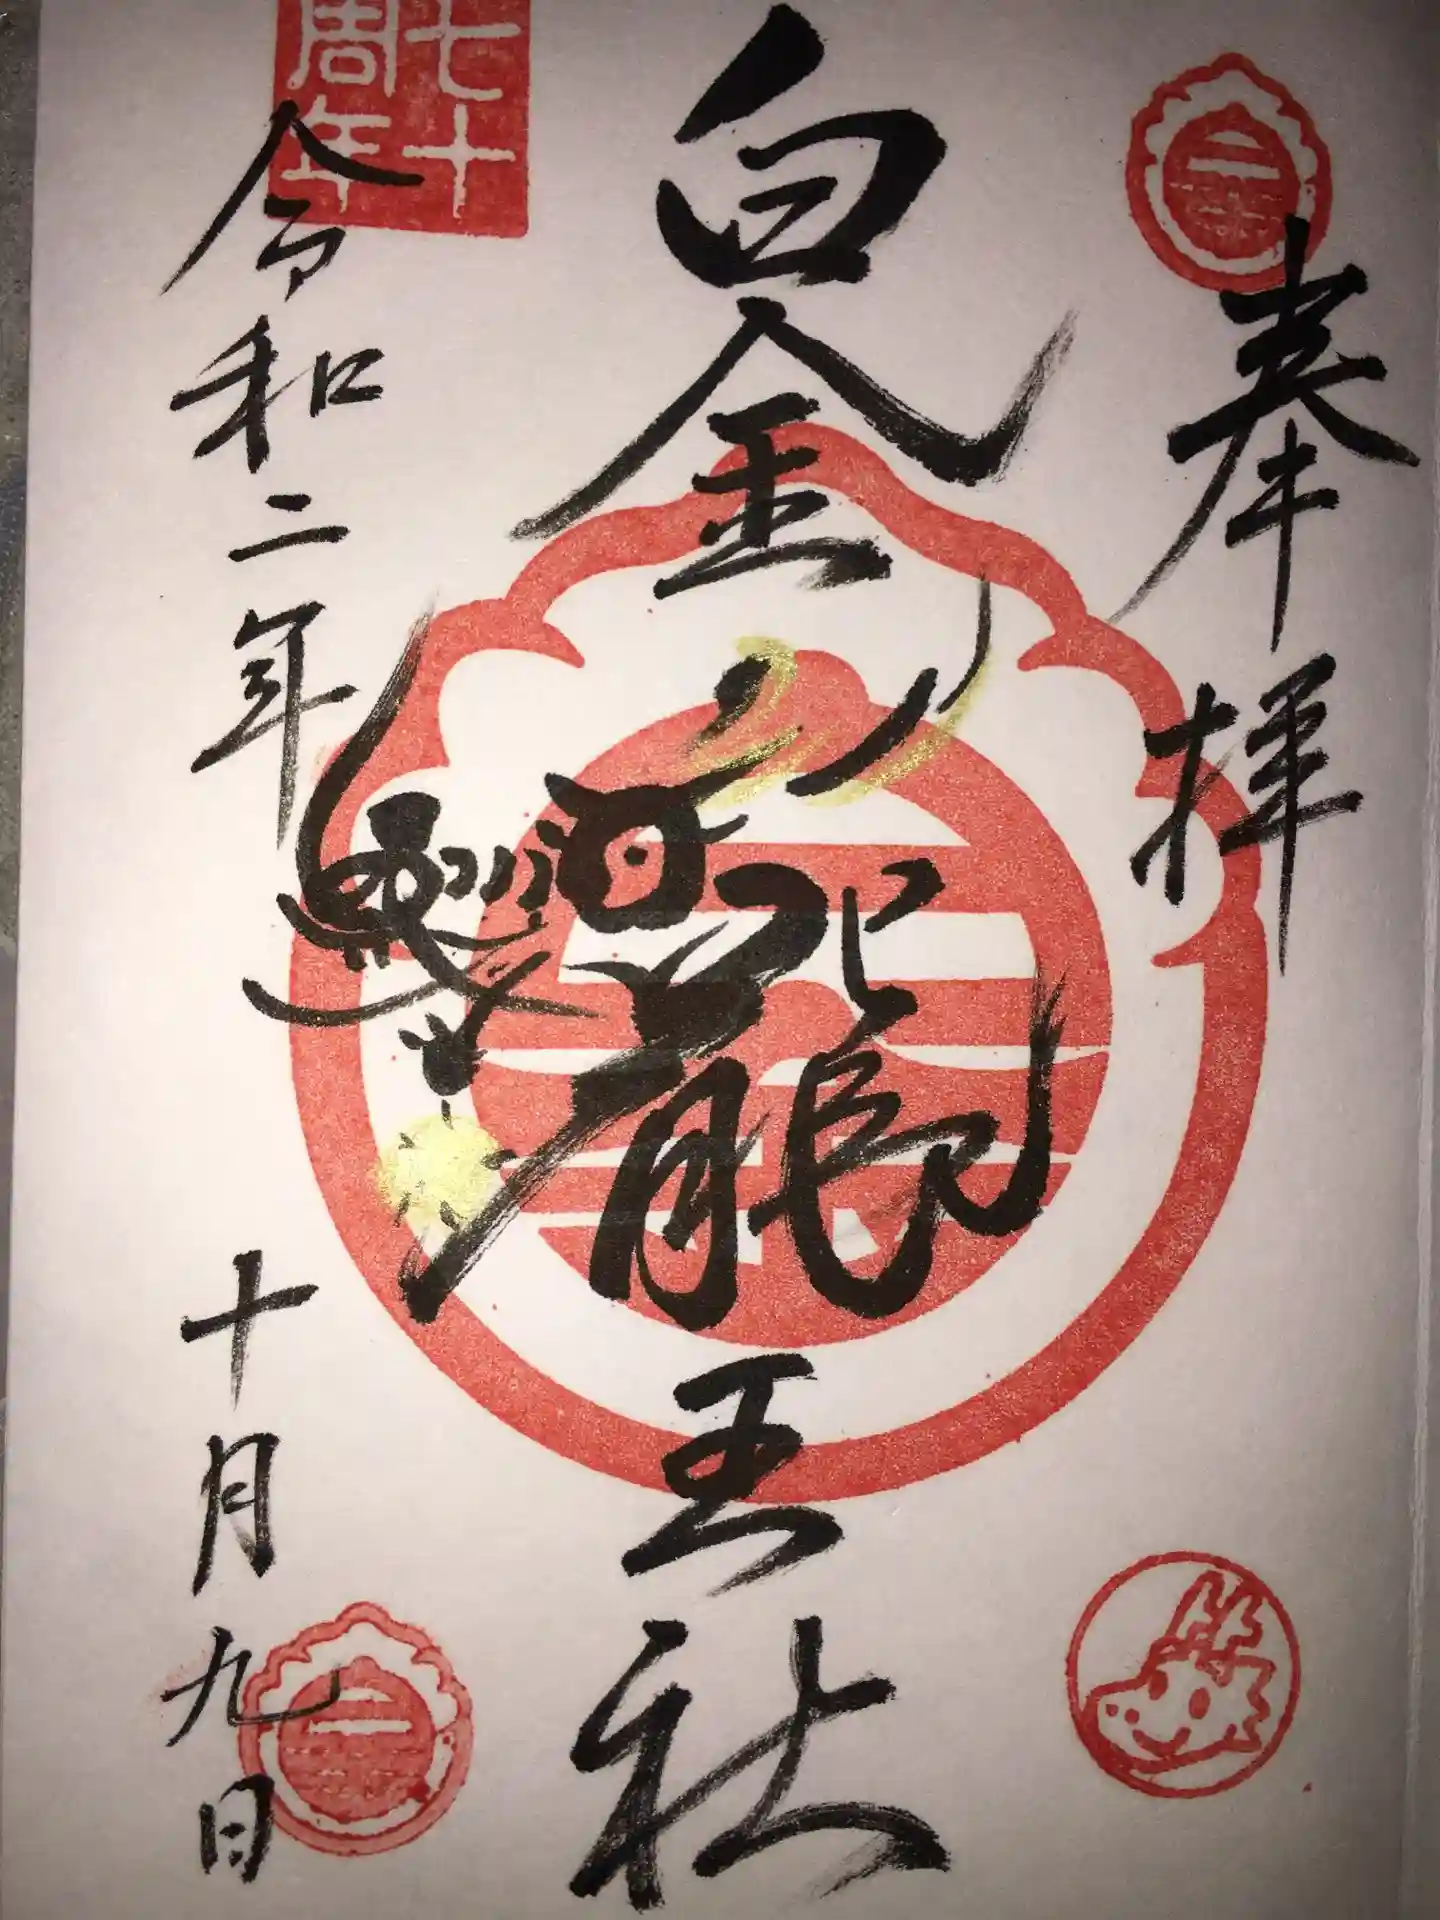 奉拝
白金龍王社
令和二年十月九日
七十
周年